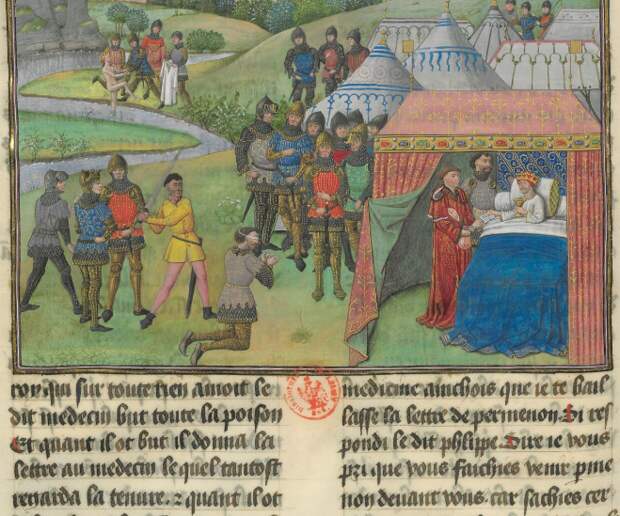 roy qui sur toute rien amoit le
dit medecin but toute la poison
Et quant il ot but il donna la
lettre au medecin le quel tantost
regarda la tenure. ⁊ quant il ot
medicine ainchois que ie te bail
lasse la lettre de permenon. Si res
pondi le dit phlippe. Sire ie vous
pri que vous faichies venir pme
non devant vous. car sachies cer